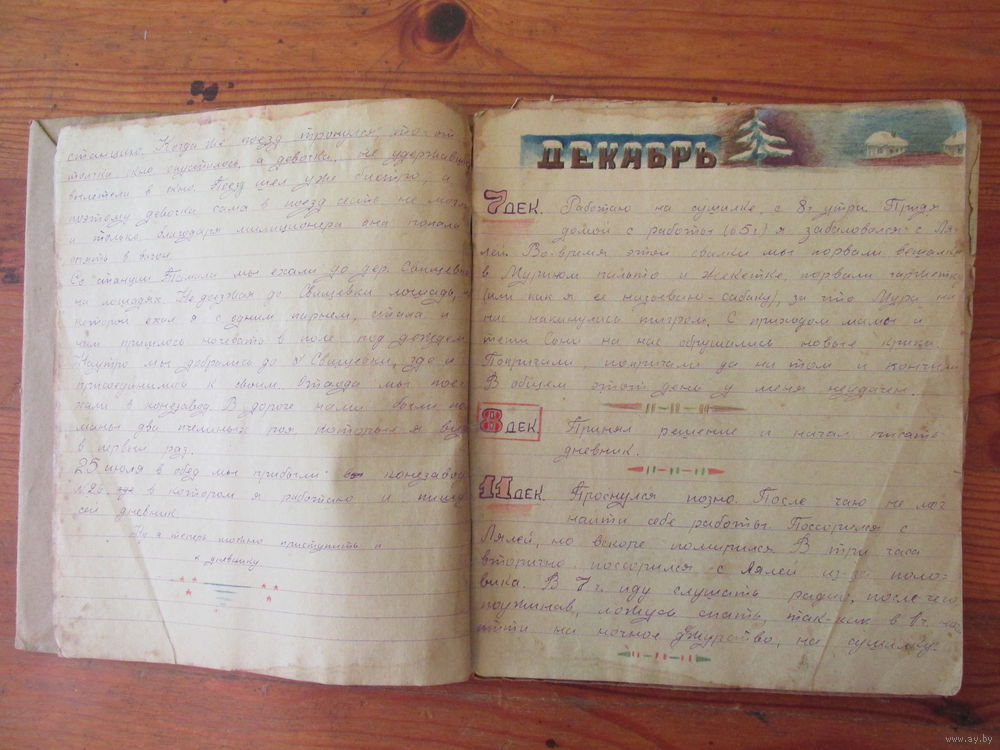 станцию. Когда же поезд тронулся, то от
толчка окно опустилось, а девочка, не удержавшись
вылетела в окно. Поезд шел уже быстро, и
поэтому девочка сама в поезд сесть не мог
и только благодаря милиционера она попала
опять в вагон.
Со станции Томала мы ехали до дер. Свищевки
на лошадях. Не доезжая до Свищевки лошадь, н
которой ехал я с одним парнем, стала и
нам пришлось ночевать в поле под дождем.
Наутро мы добрались до д. Свищевки, где и
присоединился к своим. Отсюда мы пое-
хали в конезавод. В дороге нами были пой-
маны два пчелиных роя которые я видел
в первый раз.
25 июля в обед мы прибыли в конезавод
№26, в котором я работаю и пишу
сей дневник.
Ну я теперь можно приступить и
к дневнику.
ДЕКАБРЬ
7 ДЕК. Работаю на сушилке, с 8ч утра. Придя
домой с работы (в 5ч) я забаловался с Ля-
лей. Во время этой свалки мы порвали вешалки
в Мурином пальто и жекетке, порвали горжетку
(или как я ее называю - собаку), за что Мура на
нас накинулась тигром. С приходом мамы и
тети Сони на нас обрушились новые крики.
Покричали, покричали да на том и кончили.
В общем этот день у меня неудачен.
8 ДЕК. Принял решение и начал писать
дневник.
11 ДЕК. Проснулся поздно. После чаю не мог
найти себе работы. Поссорился с
Лялей, но вскоре помирился. В три часа
вторично поссорился с Лялей из-за поло-
вика. В 7 ч. иду слушать радио, после чего
поужинав, ложусь спать, так-как в
идти на ночное дежурство, на сушилку.
www.ay.by